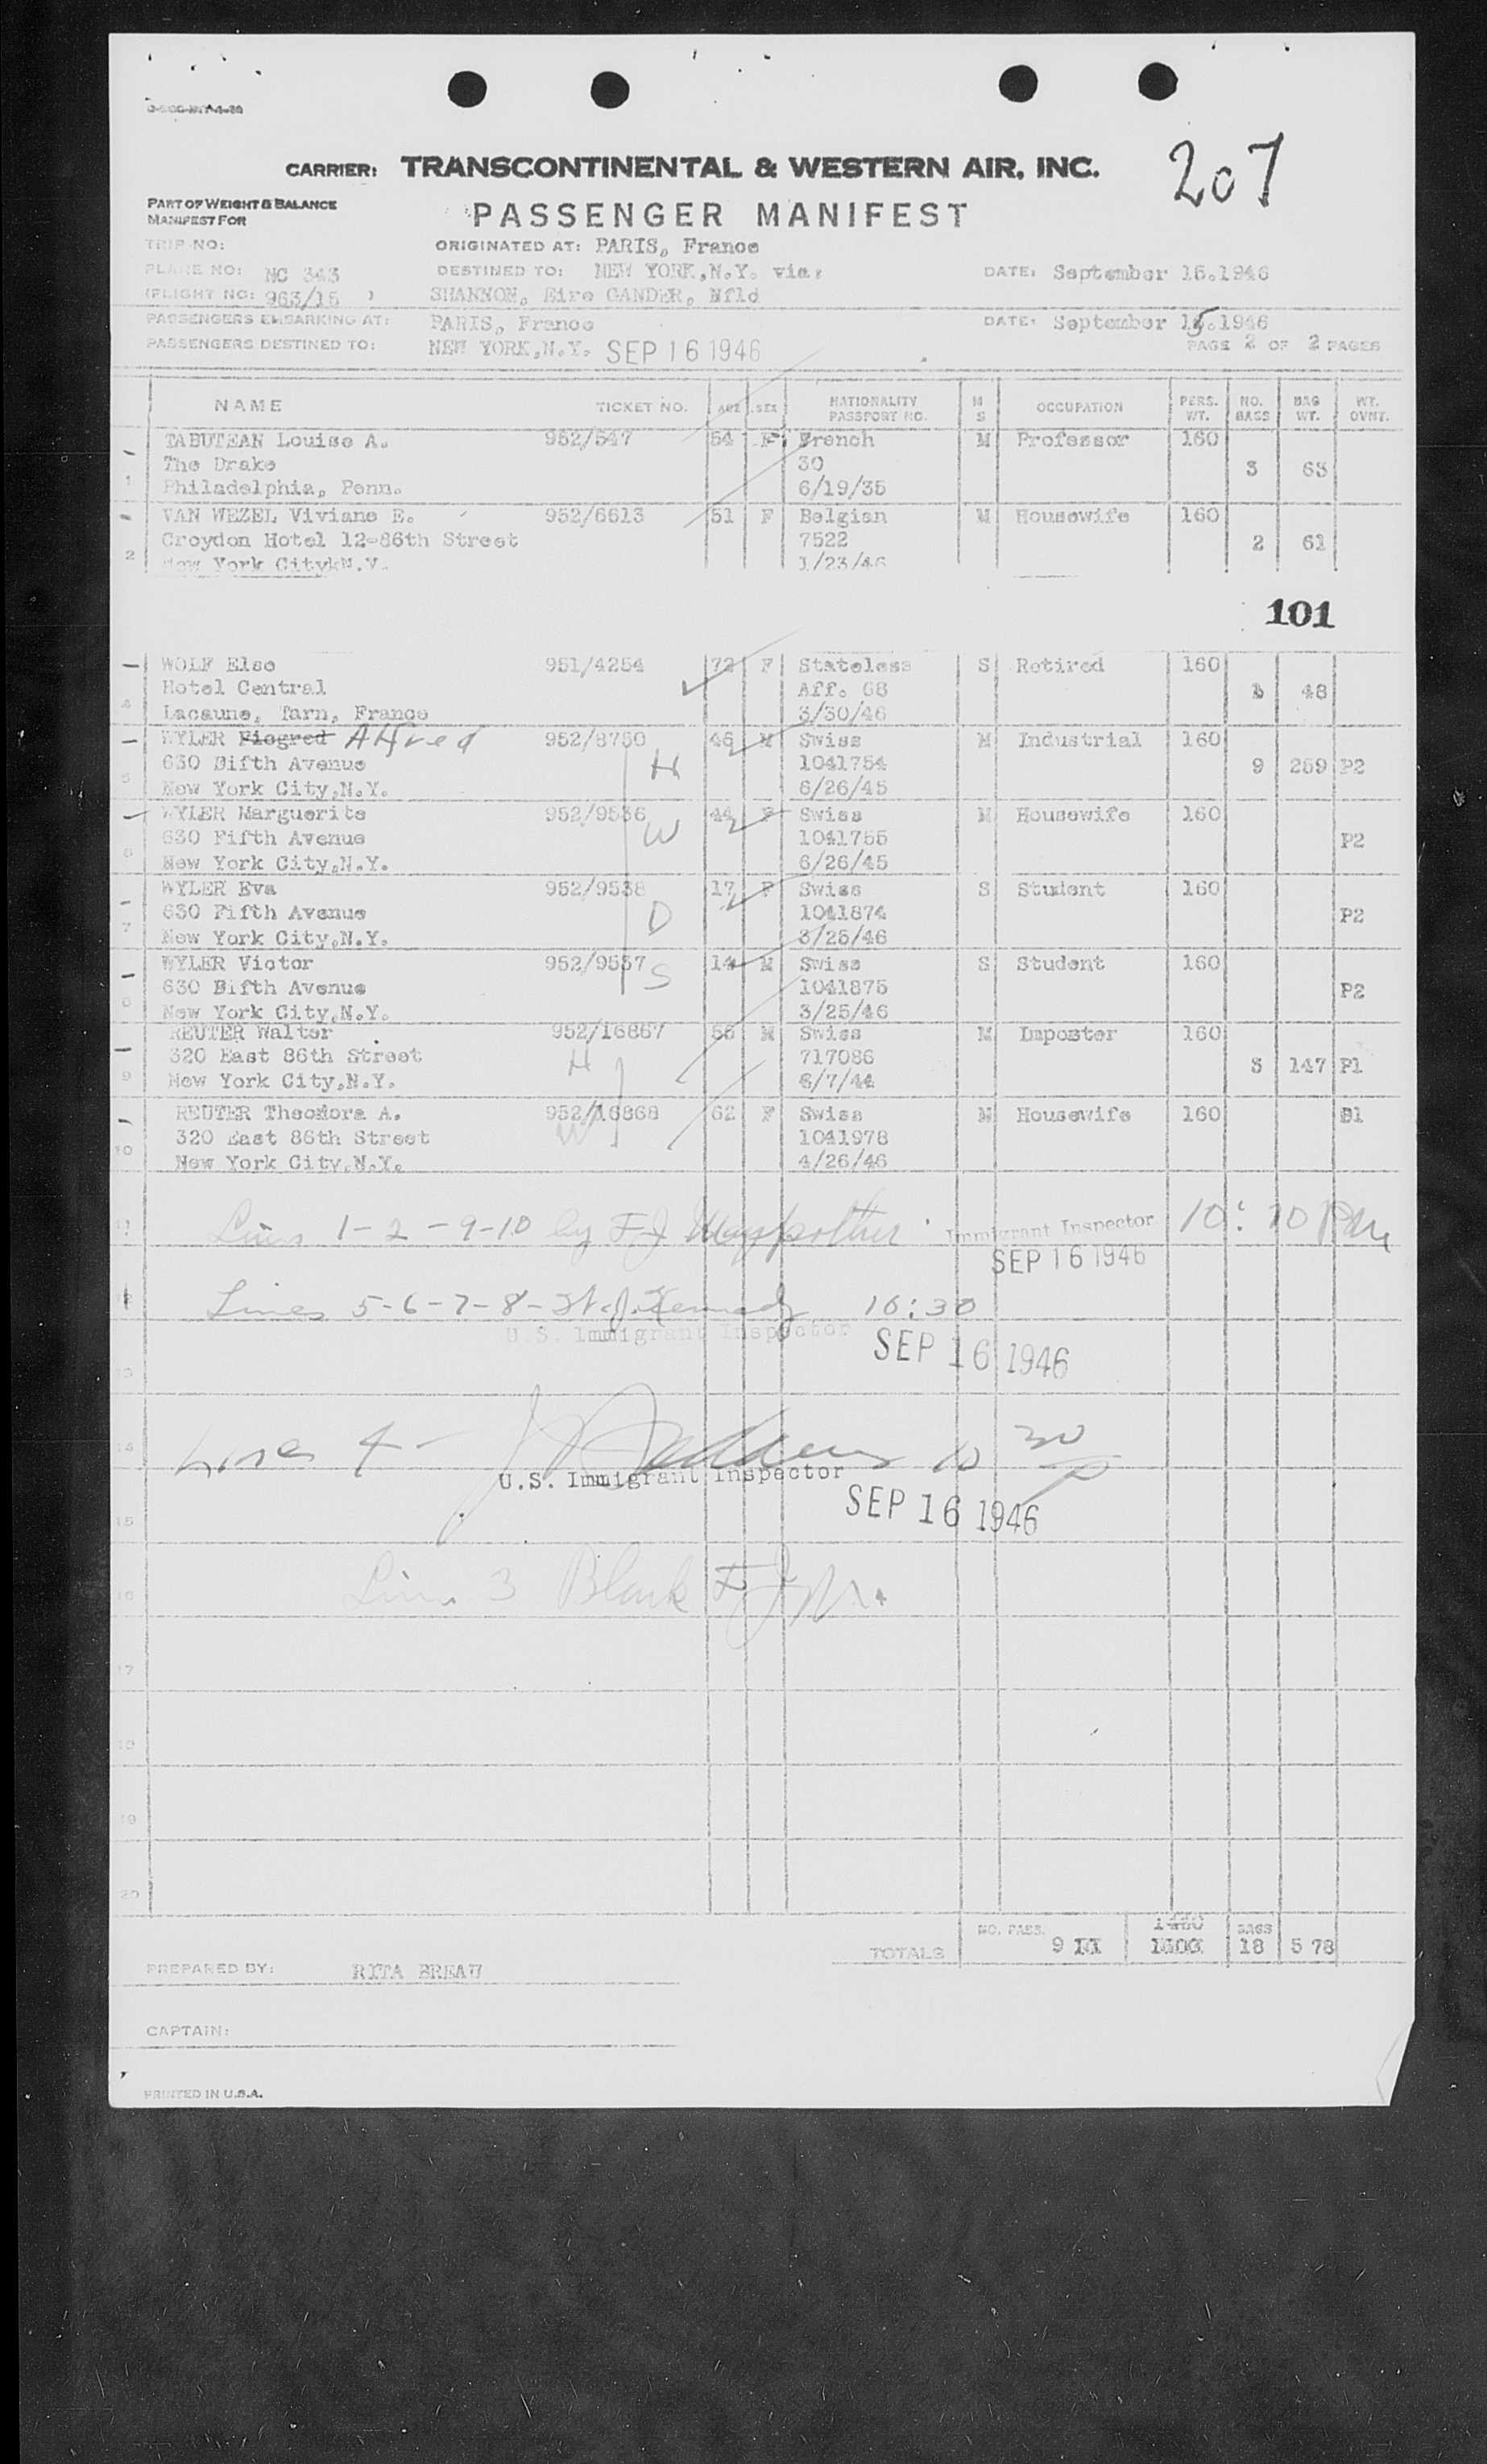 207
CARRIER: TRANSCONTINENTAL & WESTERN AIR, INC.
PART OF WEIGHT & BALANCE
MANIFEST FOR
PASSENGER MANIFEST
TRIP NO:
ORIGINATED AT: PARIS, France
PLANE NO: NC 343
DESTINED TO: NEW YORK,N.Y. via:
DATE: September 15.1946
(FLIGHT NO: 963/15 )
SHANNON, Eire GANDER, Nfld
PASSENGERS EMBARKING AT: PARIS, France
DATE: September 15.1946
PASSENGERS DESTINED TO: NEW YORK,N.Y. SEP 16 1946
PAGE 2 OF 2 PAGES
NAME TICKET NO. AGE SEX NATIONALITY PASSPORT NO. M S OCCUPATION PERS. WT. NO. BAGS BAG WT. WT. OVNT.
TABUTEAN Louise A. 952/547 54 F French M Professor 160
The Drake 30 3 63
1 Philadelphia, Penn. 6/19/35
VAN WEZEL Viviane E. 952/6613 51 F Belgian M Housewife 160
Croydon Hotel 12-86th Street 7522 2 61
2 New York CitykN.Y. 1/23/46
101
WOLF Else 951/4254 72 F Stateless S Retired 160
Hotel Central Aff. 68 1 48
4 Lacaune, Tarn, France 3/30/46
WYLER Fiogred Alfred 952/8750 46 M Swiss M Industrial 160
630 Bifth Avenue H 1041754 9 259 P2
5 New York City,N.Y. 6/26/45
WYLER Marguerite 952/9536 44 F Swiss M Housewife 160
630 Fifth Avenue W 1041755 P2
6 New York City,N.Y. 6/26/45
WYLER Eva 952/9538 17 F Swiss S Student 160
630 Fifth Avenue D 1041874 P2
7 New York City,N.Y. 3/25/46
WYLER Victor 952/9537 14 M Swiss S Student 160
630 Bifth Avenue S 1041875 P2
8 New York City,N.Y. 3/25/46
REUTER Walter 952/16867 56 M Swiss M Imposter 160
320 East 86th Street H 717086 3 147 P1
9 New York City,N.Y. 6/7/44
REUTER Theodora A. 952/16868 62 F Swiss M Housewife 160 B1
320 East 86th Street W 1041978
10 New York City,N.Y. 4/26/46
11 Lines 1-2-9-10 by F J Immigrant Inspector 10:10 PM
SEP 16 1946
12 Lines 5-6-7-8- Kennedy 10:30
U.S. Immigrant Inspector SEP 16 1946
13
14 Lines 4- 10 30
U.S. Immigrant Inspector
SEP 16 1946
15
16 Line 3 Blank F J M.
17
18
19
20
TOTALS NO. PASS. 9 1440 BAGS 18 578
PREPARED BY: RITA BREAU
CAPTAIN:
PRINTED IN U.S.A.